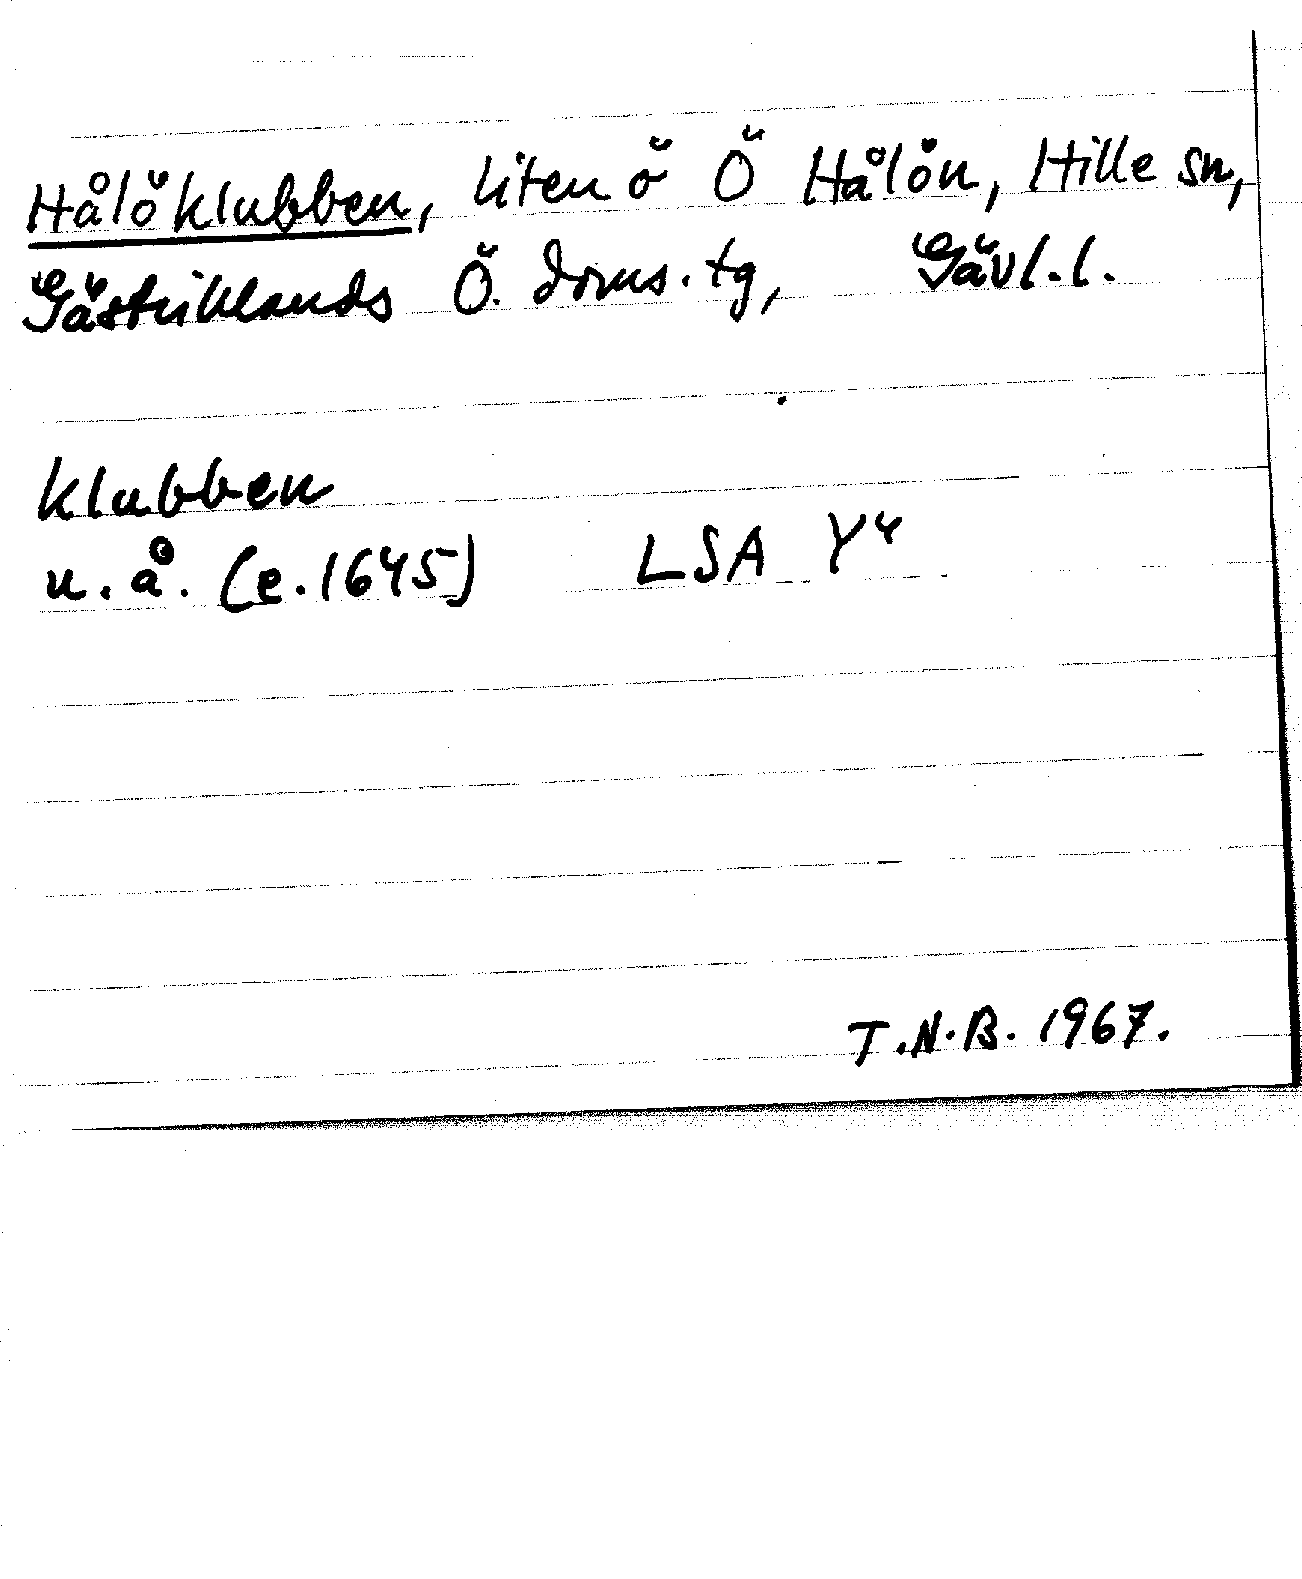 Hålöklubben, liten ö Ö Hålön, Hille sn,
Gästriklands Ö. doms. tg, Gävl. l.
klubben
u. å. (e. 1645) LSA Y⁴
T.N.B. 1967.